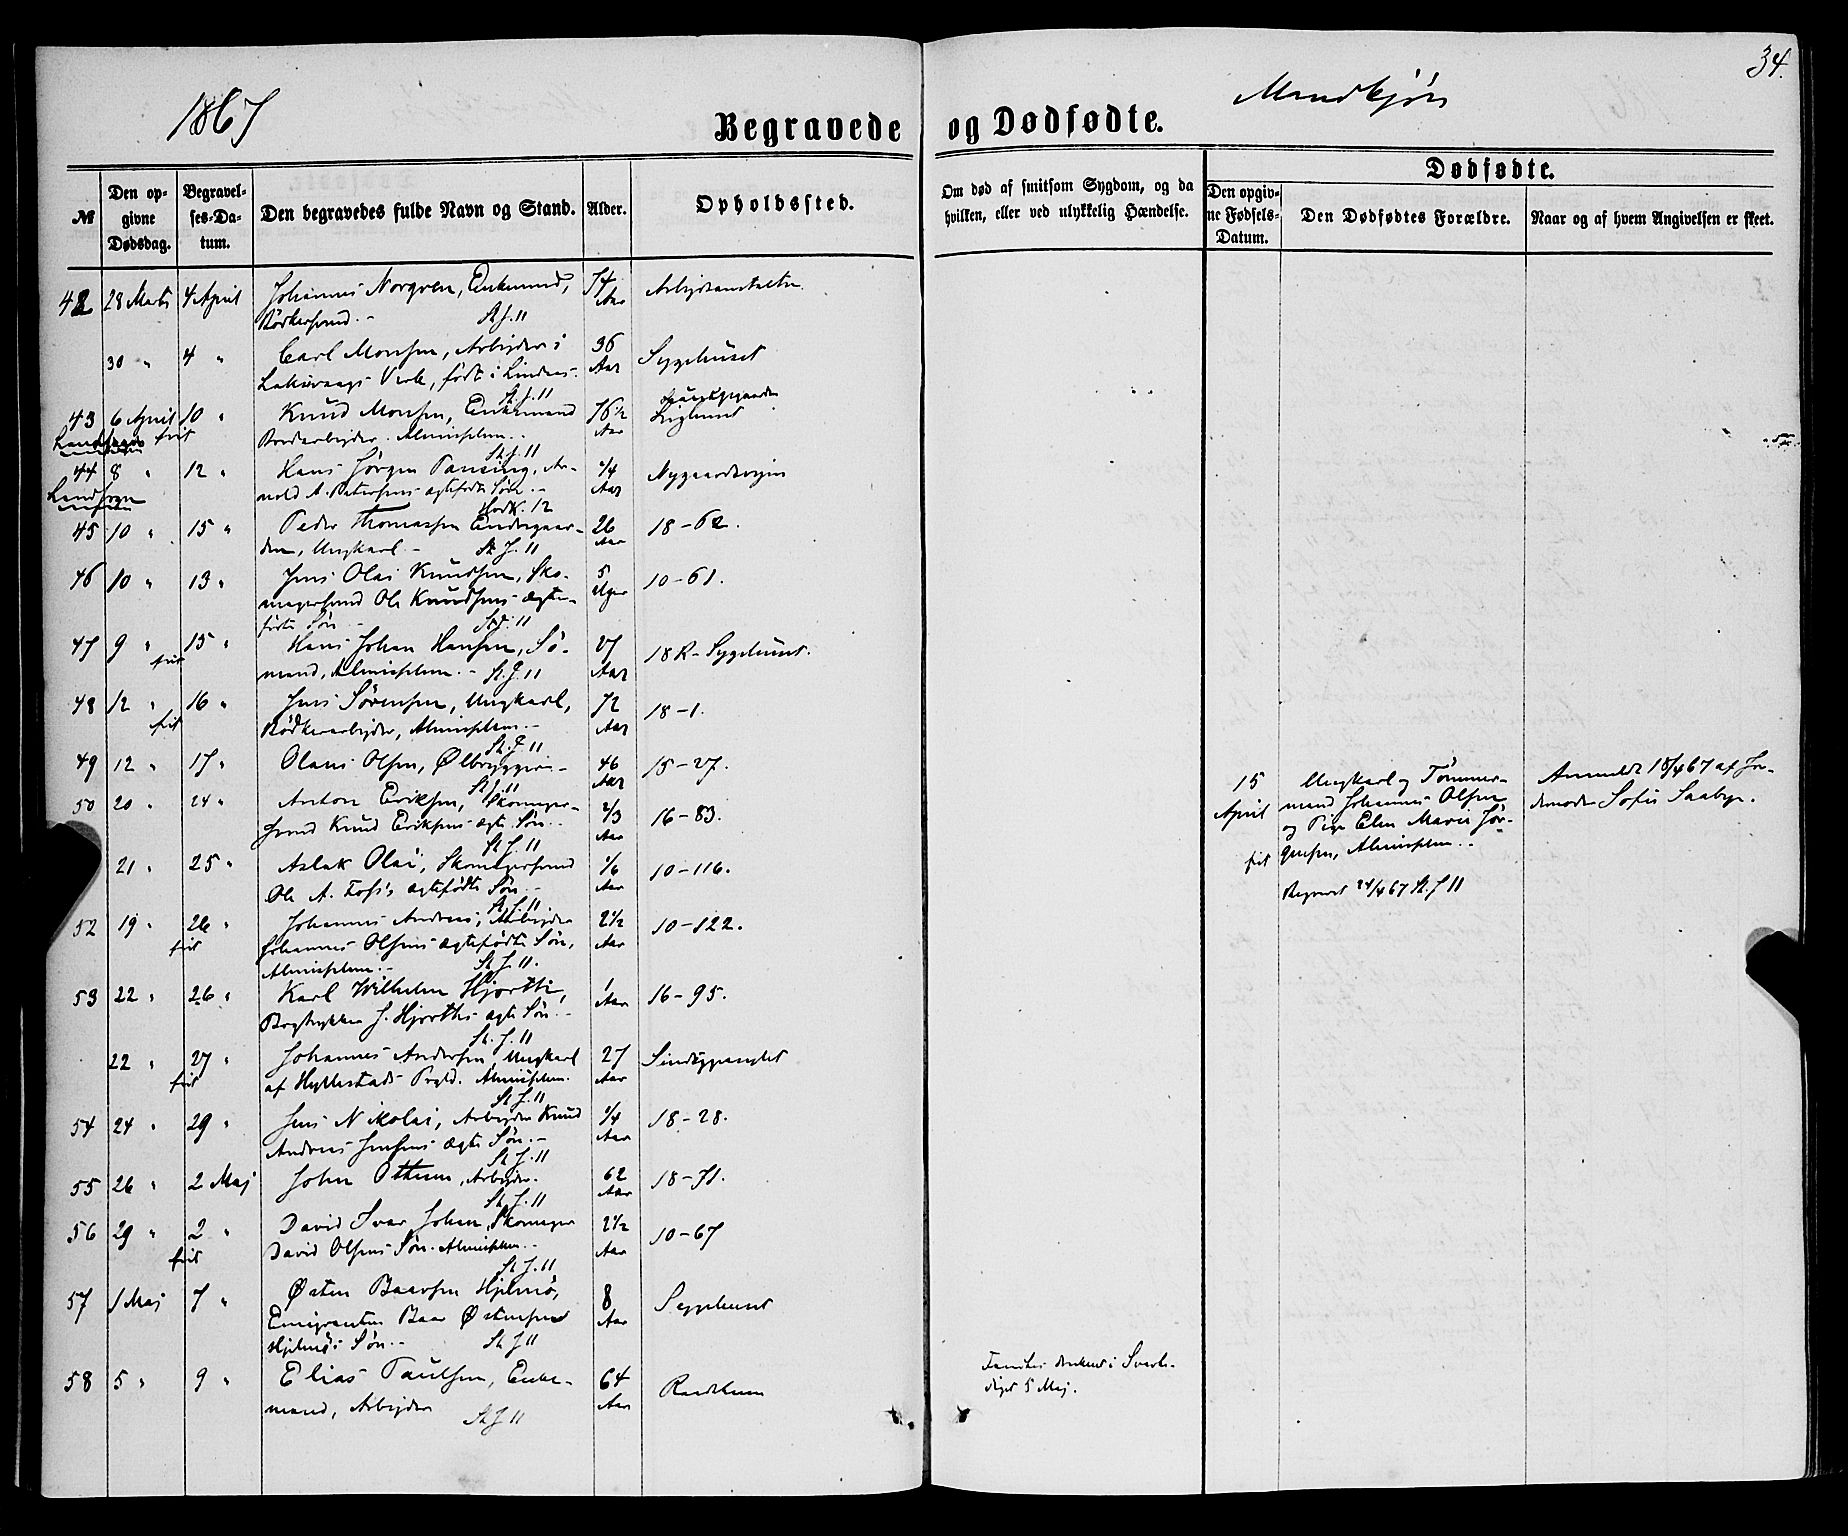 34.
1867
Mandkjøn
Begravede og Dødfødte.
№
Den opgivne Dødsdag.
Begravelses-Datum.
Den begravedes fulde Navn og Stand.
Alder.
Opholdssted.
Om død af smitsom Sygdom, og da hvilken, eller ved ulykkelig Hændelse.
Dødfødte.
Den opgivne Fødsels-Datum.
Den Dødfødtes Forældre.
Naar og af hvem Angivelsen er skeet.
42 28 Marts 4 April Johannes Norgren, Enkemand, 74 Aar Arbeidsanstalten
Bødkersvend. - St. J. 11
30 " 4 " Carl Monsen, Arbeider i 36 Aar Sygehuset
Laksevaags Værk, født i Lindaas. St. J. 11
43 6 April 10 " Knud Monsen, Enkemand 76½ Aar
frit Almisselem. St. J. 11
44 8 " 12 " Hans Jørgen 1/4 Aar
Landsogn ægtefødte Søn. - 12
45 10 " 15 " Peder Thomassen 26 Aar 18-62.
Ungkarl. - St. J. 11
46 10 " 13 " Jens Olai Knudsen, Sko- 5 Uger 10-61.
magersvend Ole Knudsens ægte-
fødte Søn - St. J. 11
47 9 " 15 " Hans Johan Hansen, Sø- 27 Aar 18 R - Sygehuset.
frit mand, Almisselem. - St. J. 11
48 12 " 16 " Jens Sørensen, Ungkarl, 72 Aar 18-1.
frit Bødkerarbeider, Almisselem. -
St. J. 11
49 12 " 17 " Olaus Olsen, Ølbrygger - 46 Aar 15-27.
St. J. 11
50 20 " 24 " Anton Eriksen, Skomager- 2/3 Aar 16-83.
svend Knud Eriksens ægte Søn. -
St. J. 11
21 " 25 " Aslak Olai, Skomagersvend 1/6 Aar 10-116.
Ole A. ægtefødte Søn. -
St. J. 11
52 19 " 26 " Johannes Andreas, Arbeider 2½ Aar 10-122.
frit Johannes Olsens ægtefødte Søn,
Almisselem. - St. J. 11.
53 22 " 26 " Karl Wilhelm Hjorth, 1 Aar 16-95.
Bogtrykker J. Hjorths ægte Søn. -
St. J. 11
22 " 27 " Johannes Andersen, Ungkarl 27 Aar Sindssygeasylet
frit af Hyllestads Prgld. Almisselem.
St. J. 11
54 24 " 29 " Jens Nikolai, Arbeider Knud 1/4 Aar 18-28.
Andreas Jensens ægte Søn. -
St. J. 11
55 26 " 2 Maj John Ottesen, Arbeider. 62 Aar 18-71.
St. J. 11
56 29 " 2 " David Ivar Johan, Skomager 2½ Aar 10-67
frit David Olsens Søn. Almisselem. -
St. J. 11
57 1 Maj 7 " Østen Baarsen Hjelmø, 8 Aar Sygehuset
Emigranten Baar Østensens
Hjelmøs Søn. - St. J. 11
58 5 " 9 " Elias Paulsen, Enke- 64 Aar Raadhuset
mand, Arbeider St. J. 11
funden druknet i Svartediget 5 Maj.
15 April
frit
Ungkarl og Tømmer-
mand Johannes Olsen
og Pige Elen Marie Jør-
gensen, Almisselem. -
Begravet 24/4 67 St. J. 11
Anmeldt 18/4 67 af Jor-
demoder Sofie Saabye.